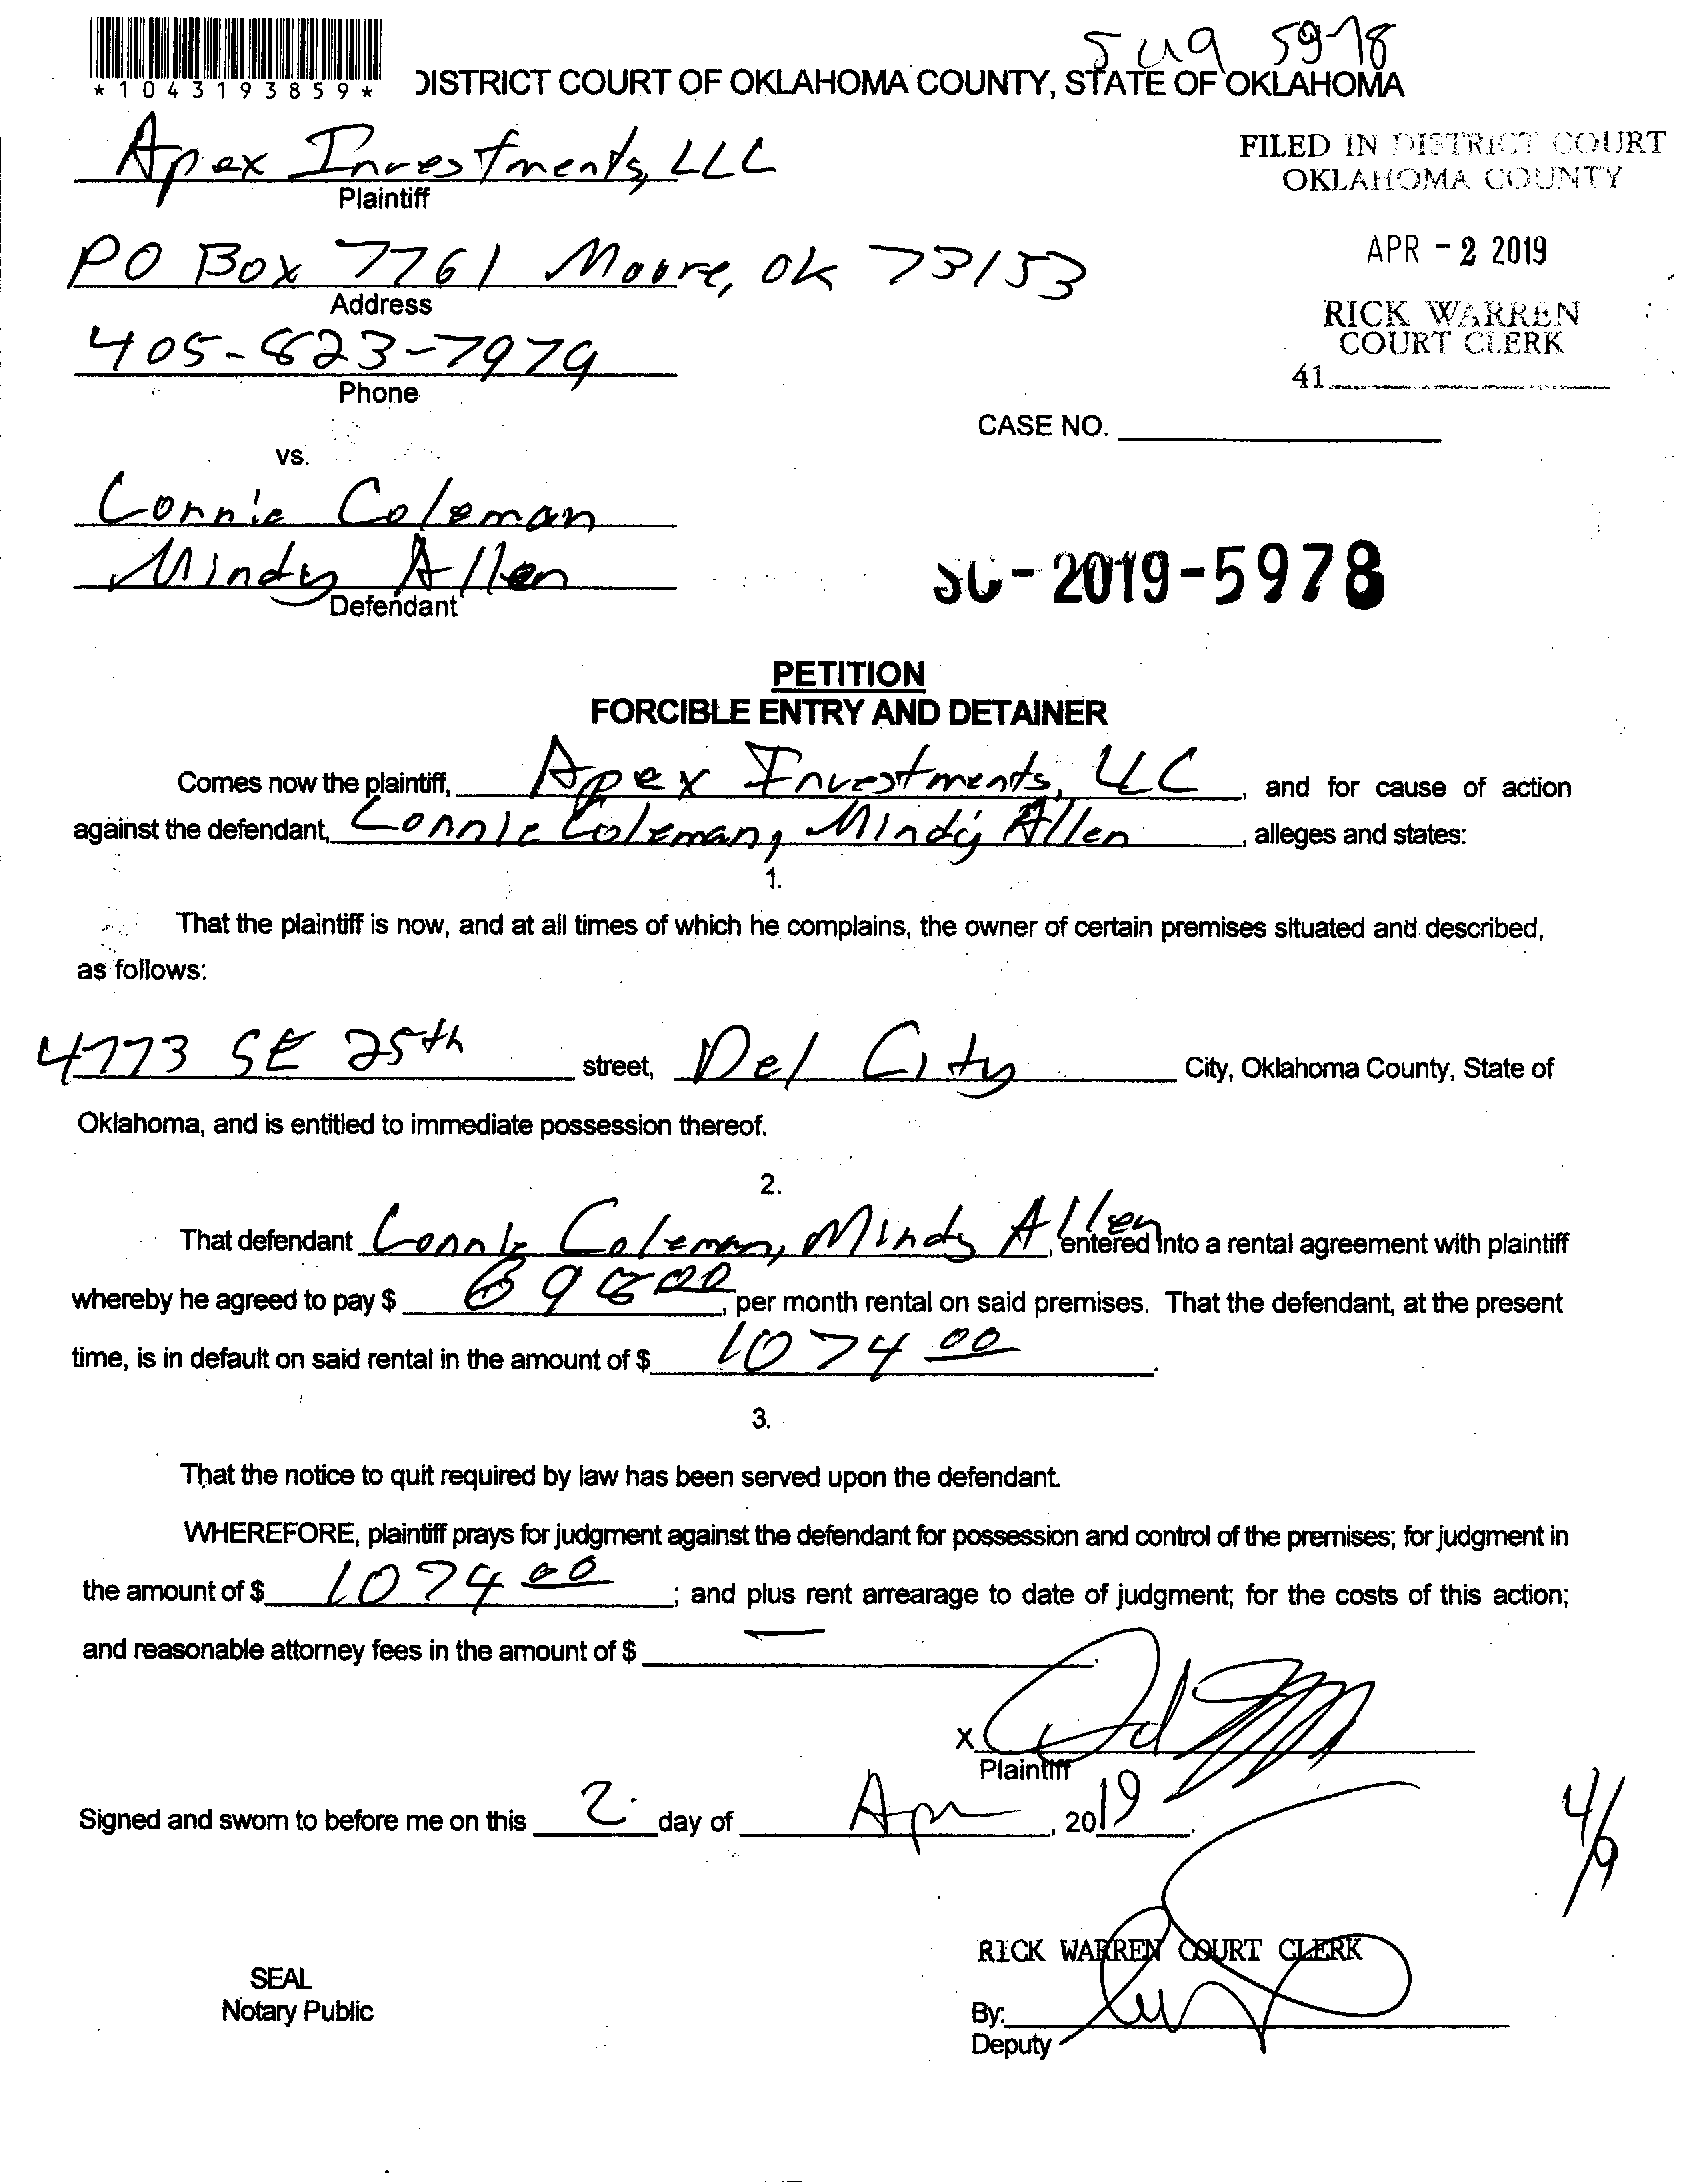 *1043193859*
DISTRICT COURT OF OKLAHOMA COUNTY, STATE OF OKLAHOMA
5978
Apex Investments, LLC
Plaintiff
FILED IN DISTRICT COURT
OKLAHOMA COUNTY
PO Box 7761 Moore, OK 73153
Address
APR - 2 2019
405-823-7979
Phone
RICK WARREN
COURT CLERK
41
CASE NO.
vs.
Connie Coleman
Mindy Allen
Defendant
SC-2019-5978
PETITION
FORCIBLE ENTRY AND DETAINER
Comes now the plaintiff, Apex Investments, LLC, and for cause of action
against the defendant, Connie Coleman, Mindy Allen, alleges and states:
1.
That the plaintiff is now, and at all times of which he complains, the owner of certain premises situated and described,
as follows:
4773 SE 25th street, Del City City, Oklahoma County, State of
Oklahoma, and is entitled to immediate possession thereof.
2.
That defendant Connie Coleman, Mindy Allen, entered into a rental agreement with plaintiff
whereby he agreed to pay $ , per month rental on said premises. That the defendant, at the present
time, is in default on said rental in the amount of $ 1074 00.
3.
That the notice to quit required by law has been served upon the defendant.
WHEREFORE, plaintiff prays for judgment against the defendant for possession and control of the premises; for judgment in
the amount of $ 1074 00; and plus rent arrearage to date of judgment; for the costs of this action;
and reasonable attorney fees in the amount of $ —.
X
Plaintiff
Signed and sworn to before me on this 2 day of Apr, 2019.
4/9
RICK WARREN COURT CLERK
SEAL
Notary Public
By:
Deputy